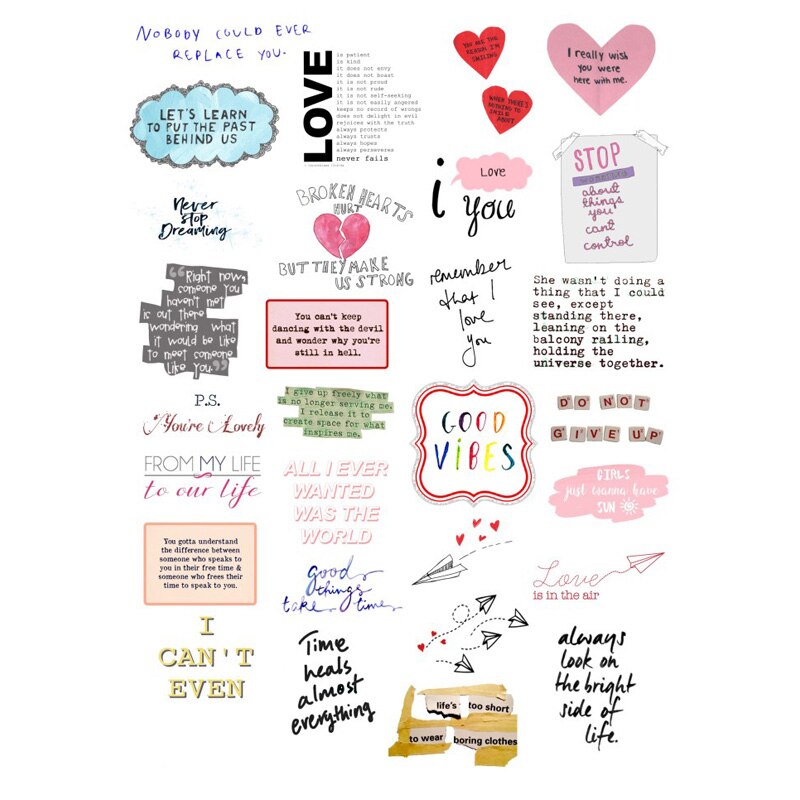 NOBODY COULD EVER
REPLACE YOU.
LOVE
is patient
is kind
it does not envy
it does not boast
it is not proud
it is not rude
it is not self-seeking
it is not easily angered
keeps no record of wrongs
does not delight in evil
rejoices with the truth
always protects
always trusts
always hopes
always perseveres
never fails
YOU ARE THE
REASON I'M
SMILING
WHEN THERE'S
NOTHING TO
SMILE
ABOUT
I really wish
you were
here with me.
LET'S LEARN
TO PUT THE PAST
BEHIND US
i
Love
you
STOP
about
things
you
can't
control
Never
stop
Dreaming
BROKEN HEARTS
HURT
BUT THEY MAKE
US STRONG
remember
that I
love
you
"Right now,
someone you
haven't met
is out there
wondering what
it would be like
to meet someone
like you."
You can't keep
dancing with the devil
and wonder why you're
still in hell.
She wasn't doing a
thing that I could
see, except
standing there,
leaning on the
balcony railing,
holding the
universe together.
P.S.
You're Lovely
I give up freely what
is no longer serving me.
I release it to
create space for what
inspires me.
GOOD
ViBES
DO NOT
GIVE UP
FROM MY LIFE
to our life
ALL I EVER
WANTED
WAS THE
WORLD
GIRLS
just wanna have
SUN
You gotta understand
the difference between
someone who speaks to
you in their free time &
someone who frees their
time to speak to you.
good
things
take time
Love
is in the air
I
CAN'T
EVEN
Time
heals
almost
everything
life's too short
to wear boring clothes
always
look on
the bright
side of
life.